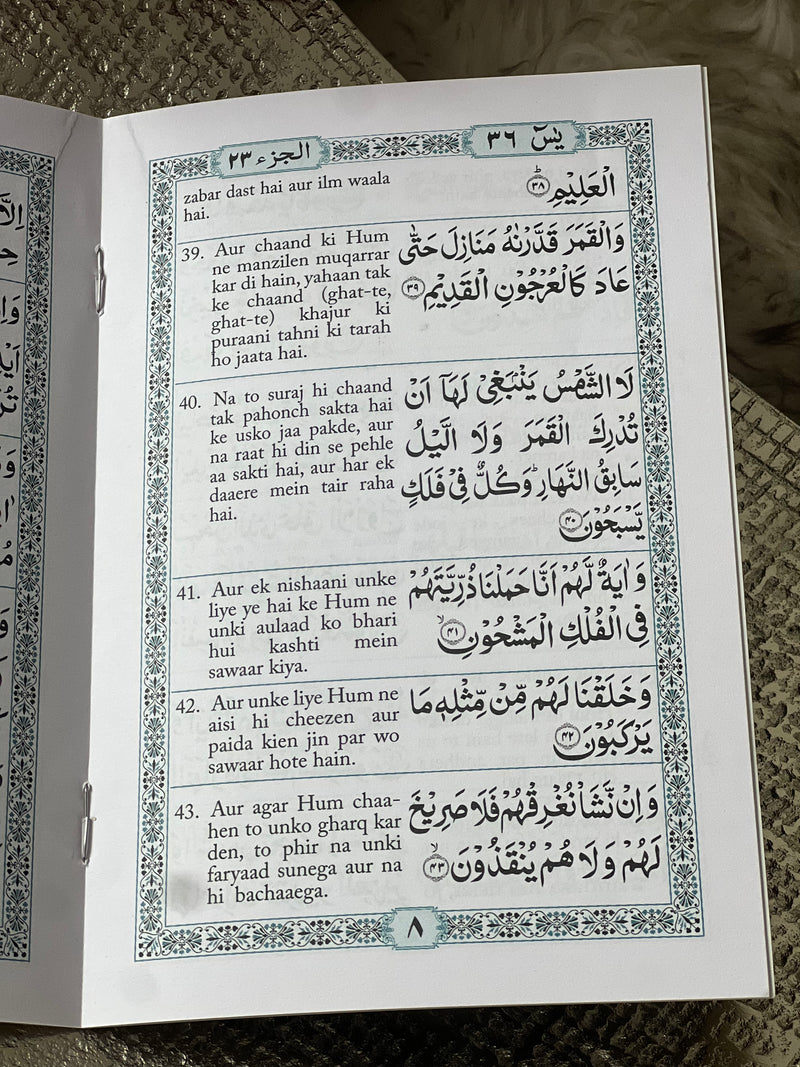 الجزء ٢٣
يٰسٓ ٣٦
zabar dast hai aur ilm waala
hai.
الْعَلِيْمِ ؕ ٣٨
39. Aur chaand ki Hum
ne manzilen muqarrar
kar di hain, yahaan tak
ke chaand (ghat-te,
ghat-te) khajur ki
puraani tahni ki tarah
ho jaata hai.
وَالْقَمَرَ قَدَّرْنٰهُ مَنَازِلَ حَتّٰى
عَادَ كَالْعُرْجُوْنِ الْقَدِيْمِ ٣٩
40. Na to suraj hi chaand
tak pahonch sakta hai
ke usko jaa pakde, aur
na raat hi din se pehle
aa sakti hai, aur har ek
daaere mein tair raha
hai.
لَا الشَّمْسُ يَنْۢبَغِىْ لَهَاۤ اَنْ
تُدْرِكَ الْقَمَرَ وَلَا الَّيْلُ
سَابِقُ النَّهَارِ ؕ وَكُلٌّ فِىْ فَلَكٍ
يَّسْبَحُوْنَ ٤٠
41. Aur ek nishaani unke
liye ye hai ke Hum ne
unki aulaad ko bhari
hui kashti mein
sawaar kiya.
وَاٰيَةٌ لَّهُمْ اَنَّا حَمَلْنَا ذُرِّيَّتَهُمْ
فِى الْفُلْكِ الْمَشْحُوْنِ ۙ ٤١
42. Aur unke liye Hum ne
aisi hi cheezen aur
paida kien jin par wo
sawaar hote hain.
وَخَلَقْنَا لَهُمْ مِّنْ مِّثْلِهٖ مَا
يَرْكَبُوْنَ ٤٢
43. Aur agar Hum chaa-
hen to unko gharq kar
den, to phir na unki
faryaad sunega aur na
hi bachaaega.
وَاِنْ نَّشَاْ نُغْرِقْهُمْ فَلَا صَرِيْخَ
لَهُمْ وَلَا هُمْ يُنْقَذُوْنَ ۙ ٤٣
٨